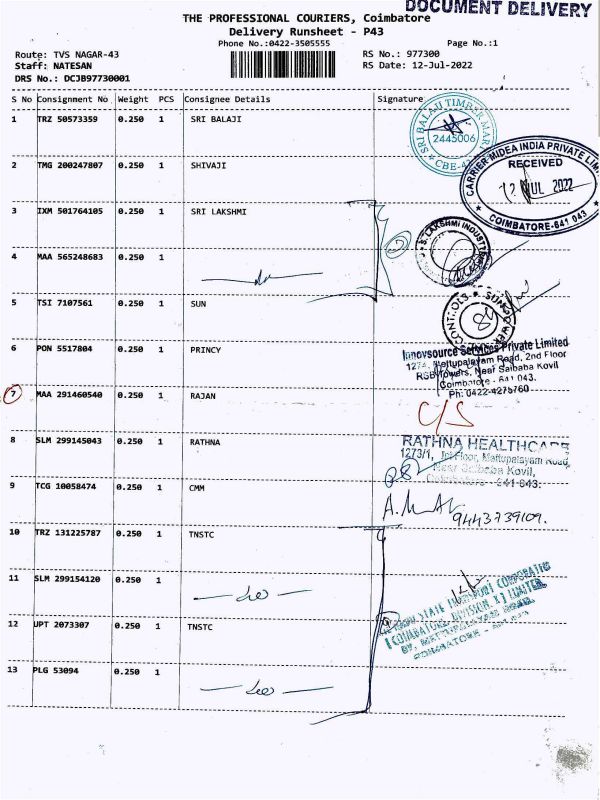 DOCUMENT DELIVERY
THE PROFESSIONAL COURIERS, Coimbatore
Delivery Runsheet - P43
Phone No.:0422-3505555 Page No.:1
Route: TVS NAGAR-43 RS No.: 977300
Staff: NATESAN RS Date: 12-Jul-2022
DRS No.: DCJB97730001
S No Consignment No Weight PCS Consignee Details Signature
1 TRZ 50573359 0.250 1 SRI BALAJI
SRI BALAJI TIMBER MAR
2445006
CBE-4
2 TMG 200247807 0.250 1 SHIVAJI
CARRIER MIDEA INDIA PRIVATE LIM
RECEIVED
12 JUL 2022
COIMBATORE-641 043
3 IXM 501764105 0.250 1 SRI LAKSHMI
LAKSHMI INDUSTR
4 MAA 565248683 0.250 1
5 TSI 7107561 0.250 1 SUN
SUN POWER CONTROLS
6 PON 5517804 0.250 1 PRINCY
Innovsource Services Private Limited
1274, Mettupalayam Road, 2nd Floor
RSB Towers, Near Saibaba Kovil
Coimbatore - 641 043.
Ph: 0422-4275760
7 MAA 291460540 0.250 1 RAJAN
C/S
8 SLM 299145043 0.250 1 RATHNA
RATHNA HEALTHCARE
1273/1, Ist Floor, Mettupalayam Road,
Near Saibaba Kovil,
Coimbatore - 641 043.
9 TCG 10058474 0.250 1 CMM
9443739109.
10 TRZ 131225787 0.250 1 TNSTC
11 SLM 299154120 0.250 1
STATE TRANSPORT CORPORATION
(COIMBATORE DIVISION X) LIMITED,
METTUPALAYAM ROAD,
COIMBATORE -
12 UPT 2073307 0.250 1 TNSTC
13 PLG 53094 0.250 1